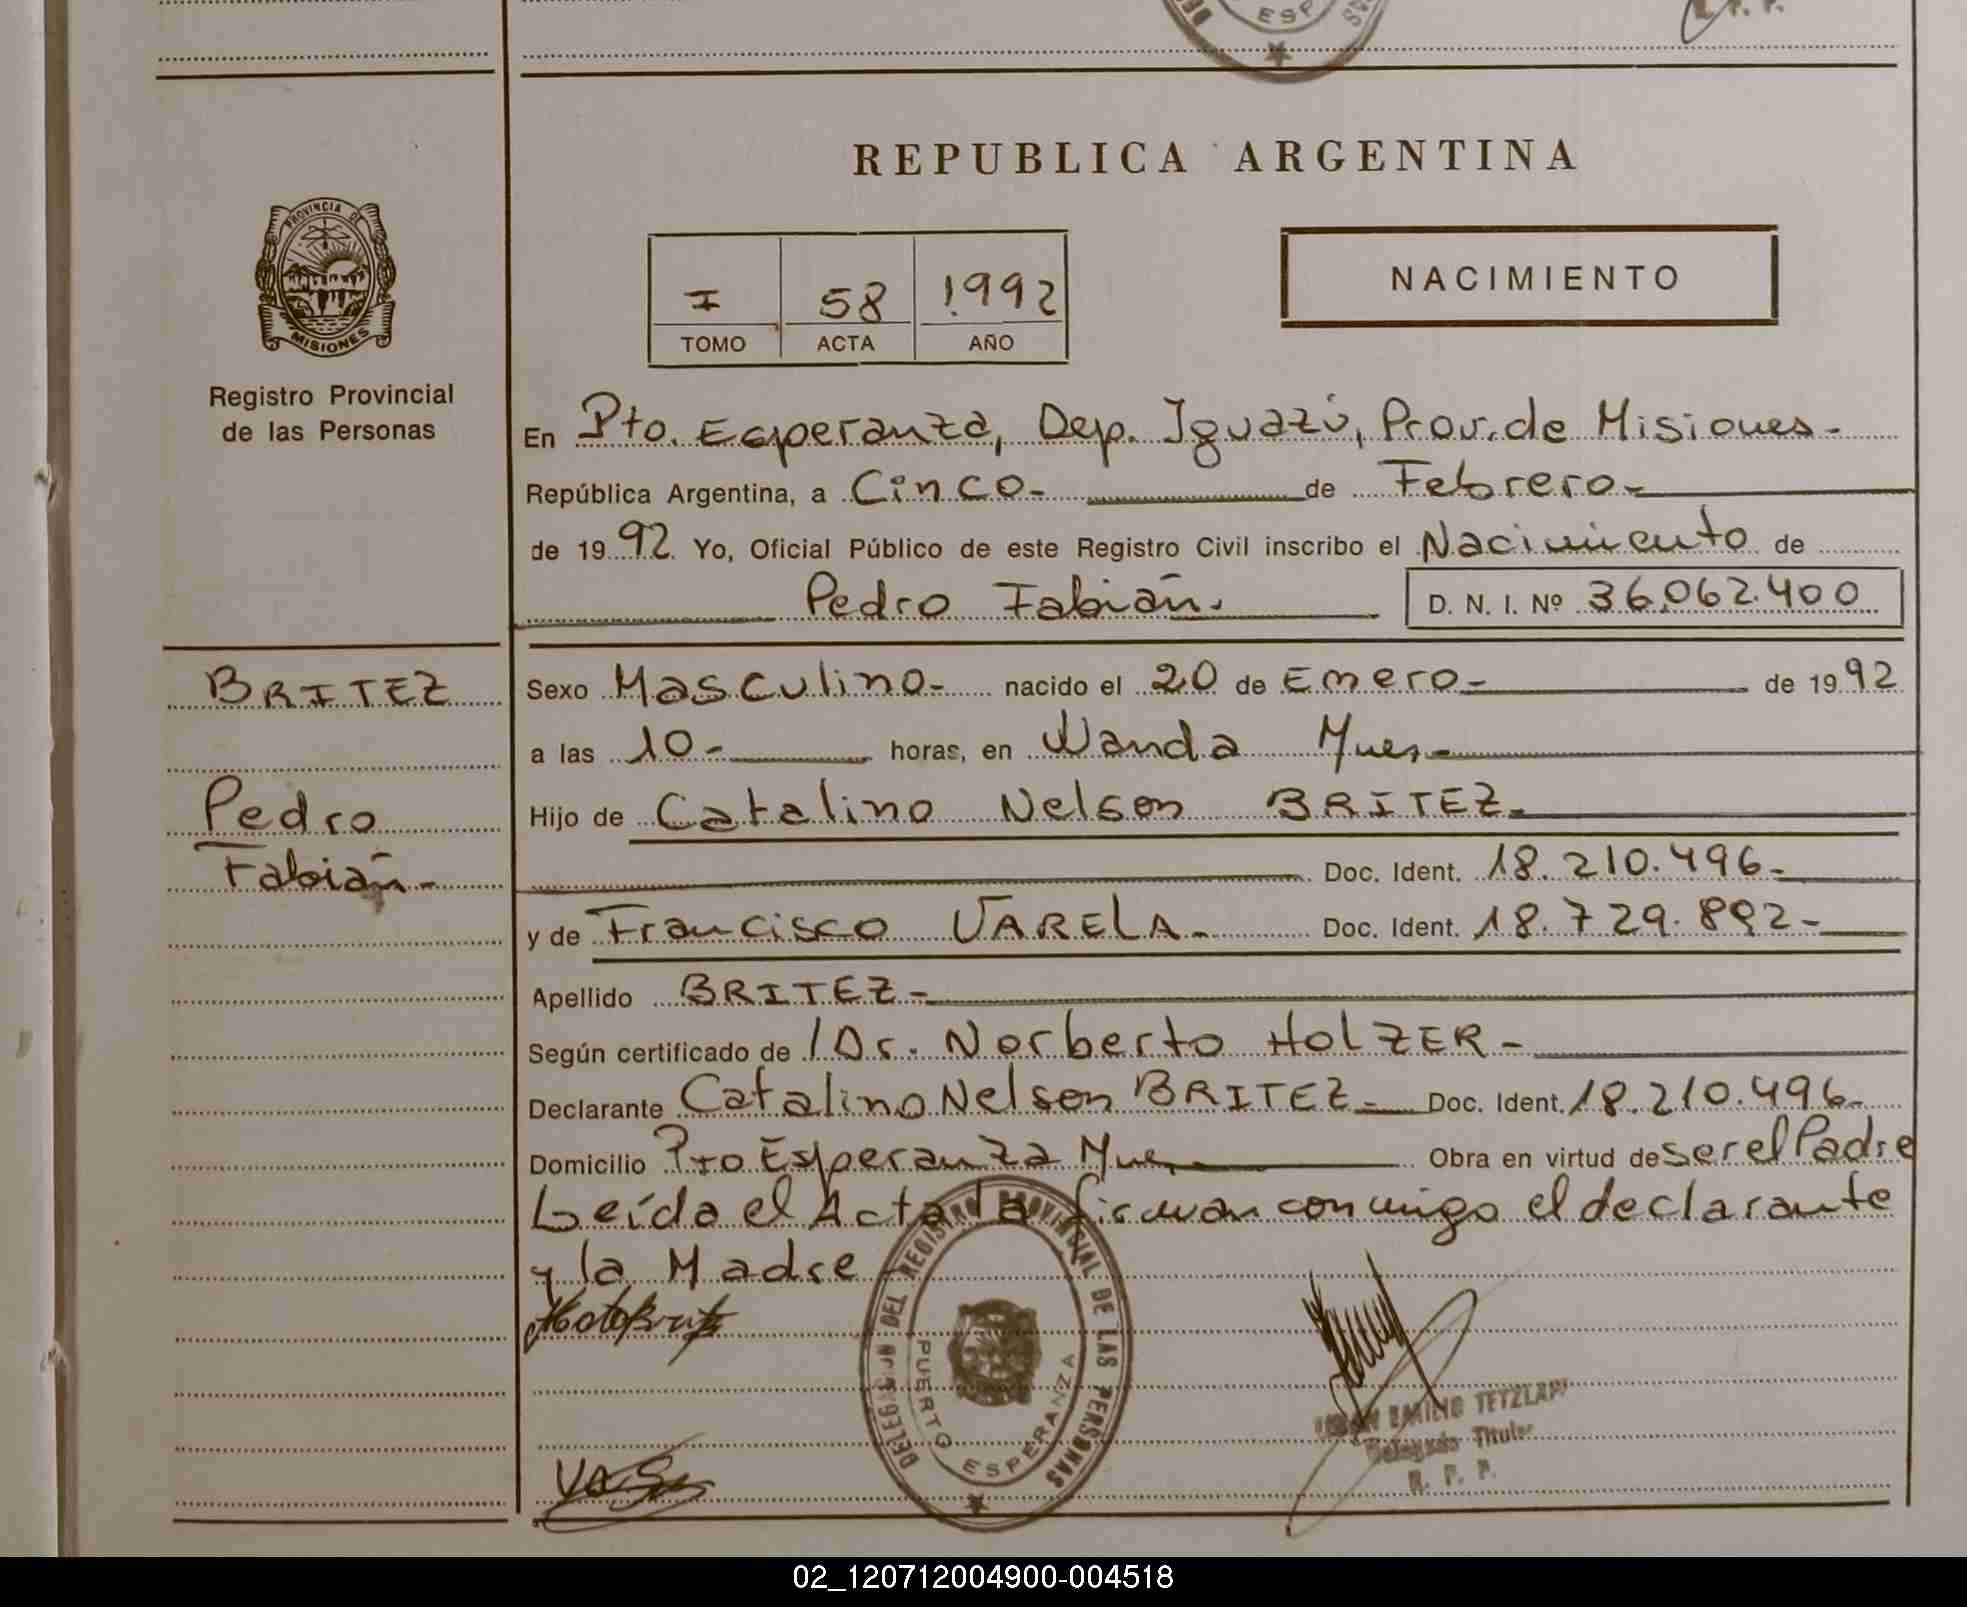 REPUBLICA ARGENTINA
PROVINCIA DE
MISIONES
Registro Provincial
de las Personas
I 58 1992
TOMO ACTA AÑO
NACIMIENTO
En Pto. Esperanza, Dep. Iguazú, Prov. de Misiones-
República Argentina, a Cinco- de Febrero-
de 1992. Yo, Oficial Público de este Registro Civil inscribo el Nacimiento de
Pedro Fabián. D. N. I. Nº 36.062.400
BRITEZ
Pedro
Fabián-
Sexo Masculino- nacido el 20 de Enero- de 1992
a las 10- horas, en Wanda Mnes-
Hijo de Catalino Nelson BRITEZ-
Doc. Ident. 18.210.496-
y de Francisco VARELA- Doc. Ident. 18.729.892-
Apellido BRITEZ-
Según certificado de Dr. Norberto HolZER-
Declarante Catalino Nelson BRITEZ- Doc. Ident. 18.210.496-
Domicilio Pto Esperanza Mnes Obra en virtud de ser el Padre
Leída el Acta la firman conmigo el declarante
y la Madre
DELEGACION DEL REGISTRO PROVINCIAL DE LAS PERSONAS
PUERTO ESPERANZA
EMILIO TETZLAFF
Delegado Titular
R. P. P.
02_120712004900-004518